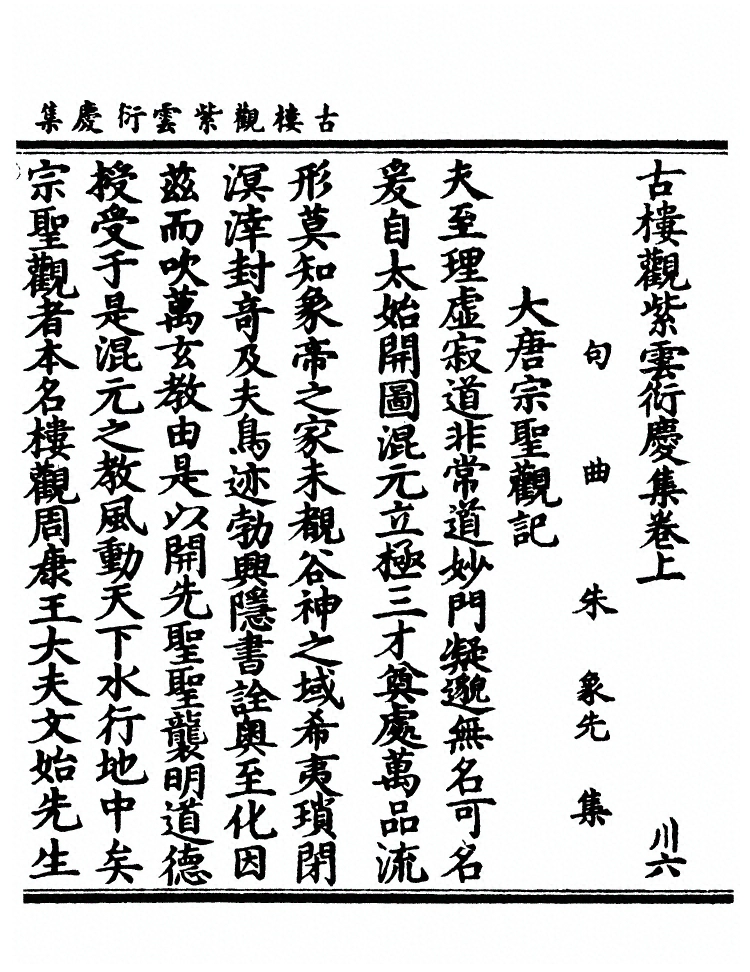 古樓觀紫雲衍慶集
古樓觀紫雲衍慶集卷上
川六
句曲朱象先集
大唐宗聖觀記
夫至理虛寂道非常道妙門凝邈無名可名
爰自太始開圖混元立極三才奠處萬品流
形莫知象帝之家未覩谷神之域希夷瑣閉
溟涬封奇及夫鳥迹勃興隱書詮奧至化因
茲而吹萬玄教由是以開先聖聖襲明道德
授受于是混元之教風動天下水行地中矣
宗聖觀者本名樓觀周康王大夫文始先生